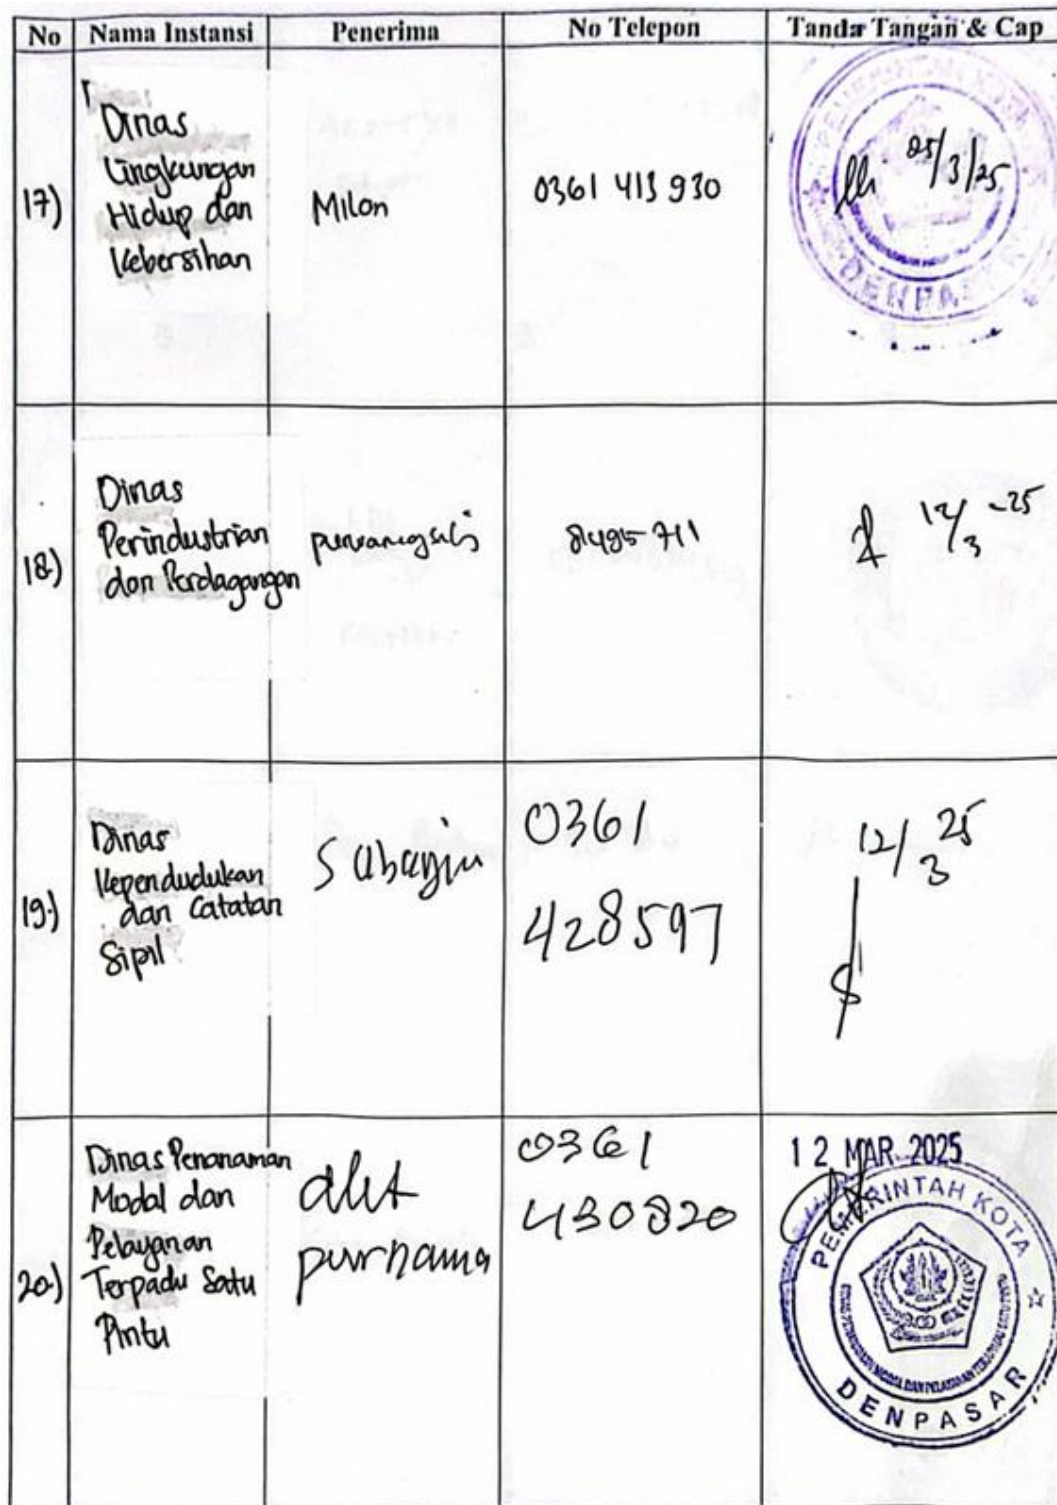 No Nama Instansi Penerima No Telepon Tanda Tangan & Cap
17)
Dinas
Lingkungan
Hidup dan
Kebersihan
Milon
0361 413 930
05/3/25
PEMERINTAH KOTA
DENPASAR
18)
Dinas
Perindustrian
dan Perdagangan
8495 711
12/3 -25
19)
Dinas
Kependudukan
dan Catatan
Sipil
0361
428597
12/3 25
20)
Dinas Penanaman
Modal dan
Pelayanan
Terpadu Satu
Pintu
alit
purnama
0361
430820
12 MAR 2025
PEMERINTAH KOTA
DENPASAR